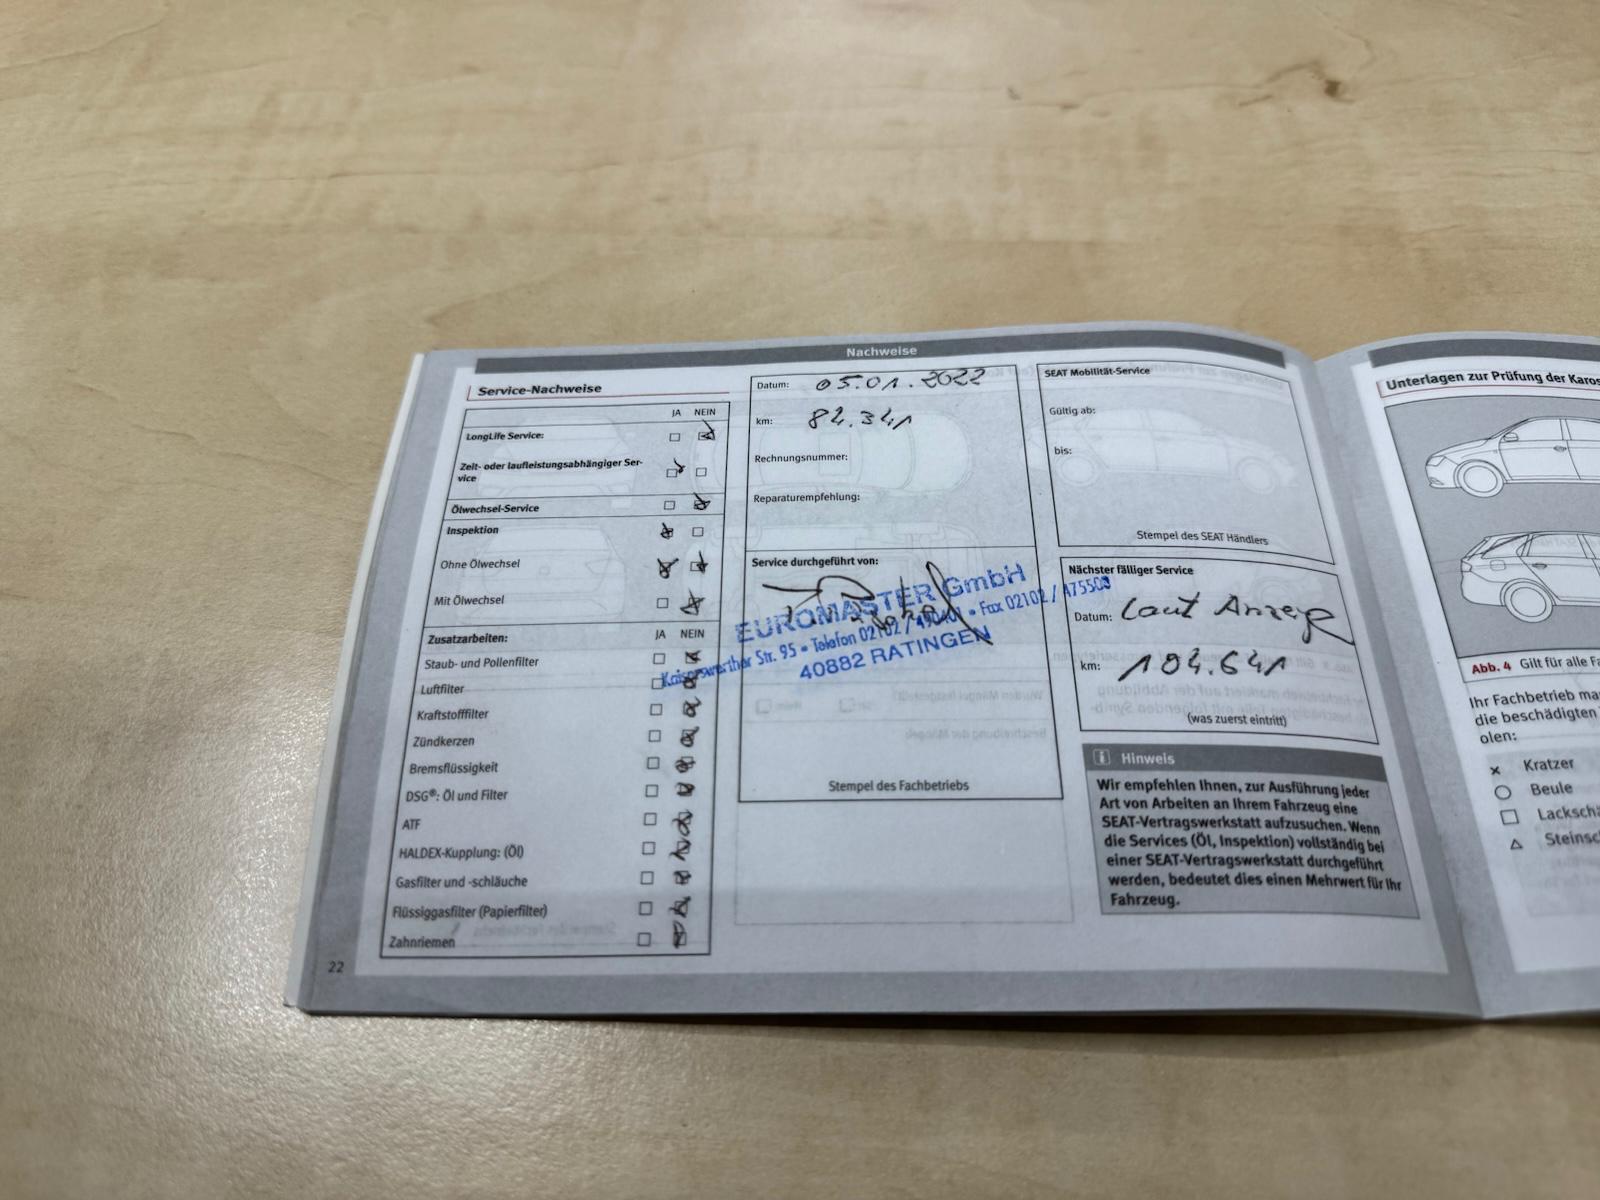 Nachweise
Service-Nachweise
JA NEIN
LongLife Service:
Zeit- oder laufleistungsabhängiger Ser-
vice
Ölwechsel-Service
Inspektion
Ohne Ölwechsel
Mit Ölwechsel
Zusatzarbeiten: JA NEIN
Staub- und Pollenfilter
Luftfilter
Kraftstofffilter
Zündkerzen
Bremsflüssigkeit
DSG®: Öl und Filter
ATF
HALDEX-Kupplung: (Öl)
Gasfilter und -schläuche
Flüssiggasfilter (Papierfilter)
Zahnriemen
22
Datum: 05.01.2022
km: 84.341
Rechnungsnummer:
Reparaturempfehlung:
Service durchgeführt von:
EUROMASTER GmbH
Kaiserswerther Str. 95 • Telefon 02102 / • Fax 02102 / 475503
40882 RATINGEN
Stempel des Fachbetriebs
SEAT Mobilität-Service
Gültig ab:
bis:
Stempel des SEAT Händlers
Nächster fälliger Service
Datum: Laut Anzeige
km: 104.641
(was zuerst eintritt)
i Hinweis
Wir empfehlen Ihnen, zur Ausführung jeder
Art von Arbeiten an Ihrem Fahrzeug eine
SEAT-Vertragswerkstatt aufzusuchen. Wenn
die Services (Öl, Inspektion) vollständig bei
einer SEAT-Vertragswerkstatt durchgeführt
werden, bedeutet dies einen Mehrwert für Ihr
Fahrzeug.
Unterlagen zur Prüfung der Karos
Abb. 4 Gilt für alle Fa
Ihr Fachbetrieb ma
die beschädigten
olen:
Kratzer
Beule
Lackschä
Steinsc